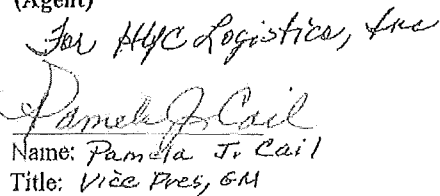 (Agent)
For HYC Logistics, Inc
Pamela J. Cail
Name: Pamela J. Cail
Title: Vice Pres, GM